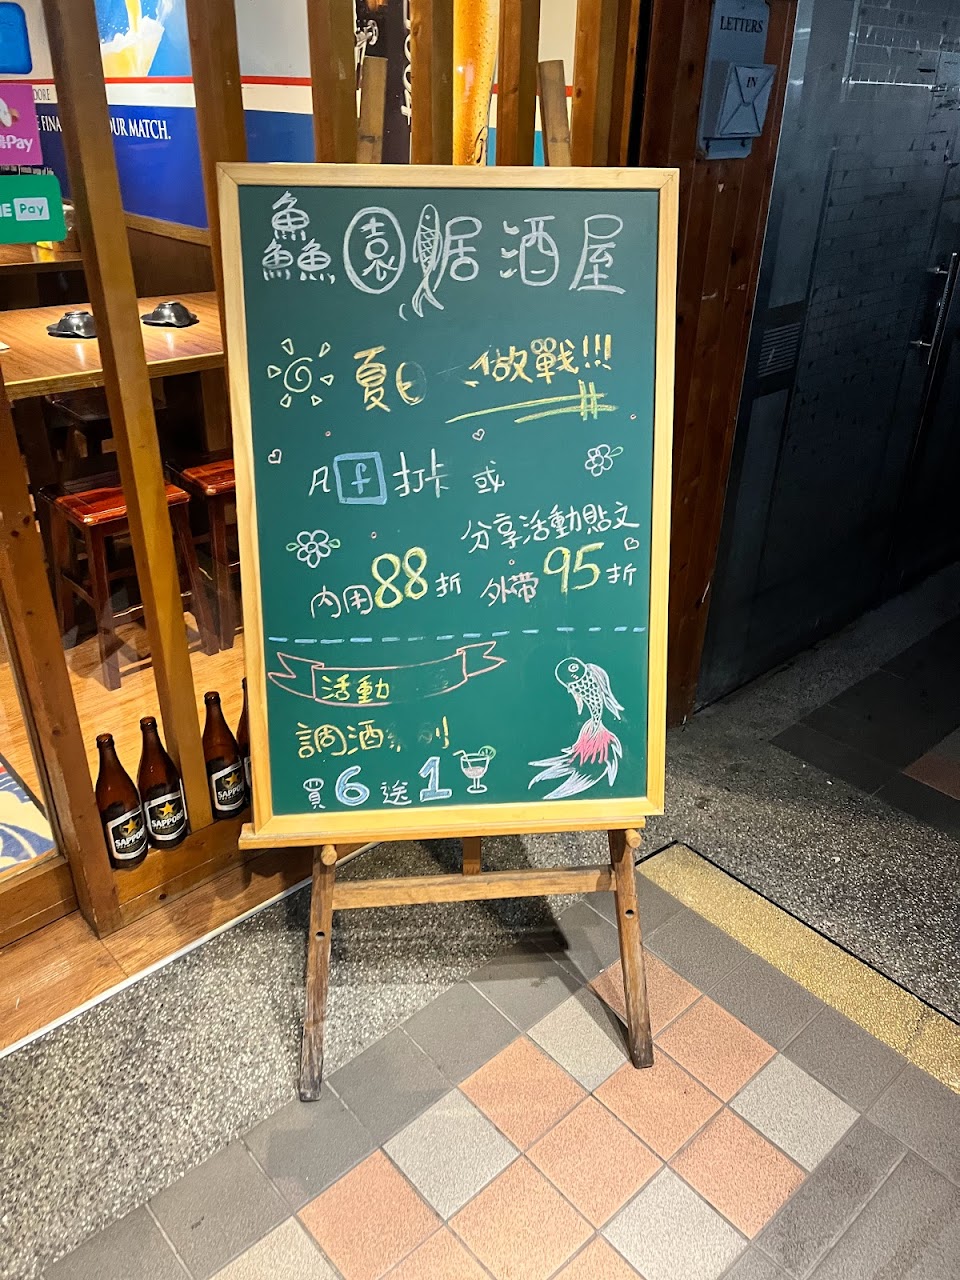 LETTERS
IN
UR MATCH.
Pay
Pay
鱻園居酒屋
夏日 做戰!!!
凡 f 打卡 或
分享活動貼文
內用88折 外帶95折
活動
調酒系列
買6送1
SAPPORO
SAPPORO
SAPPORO